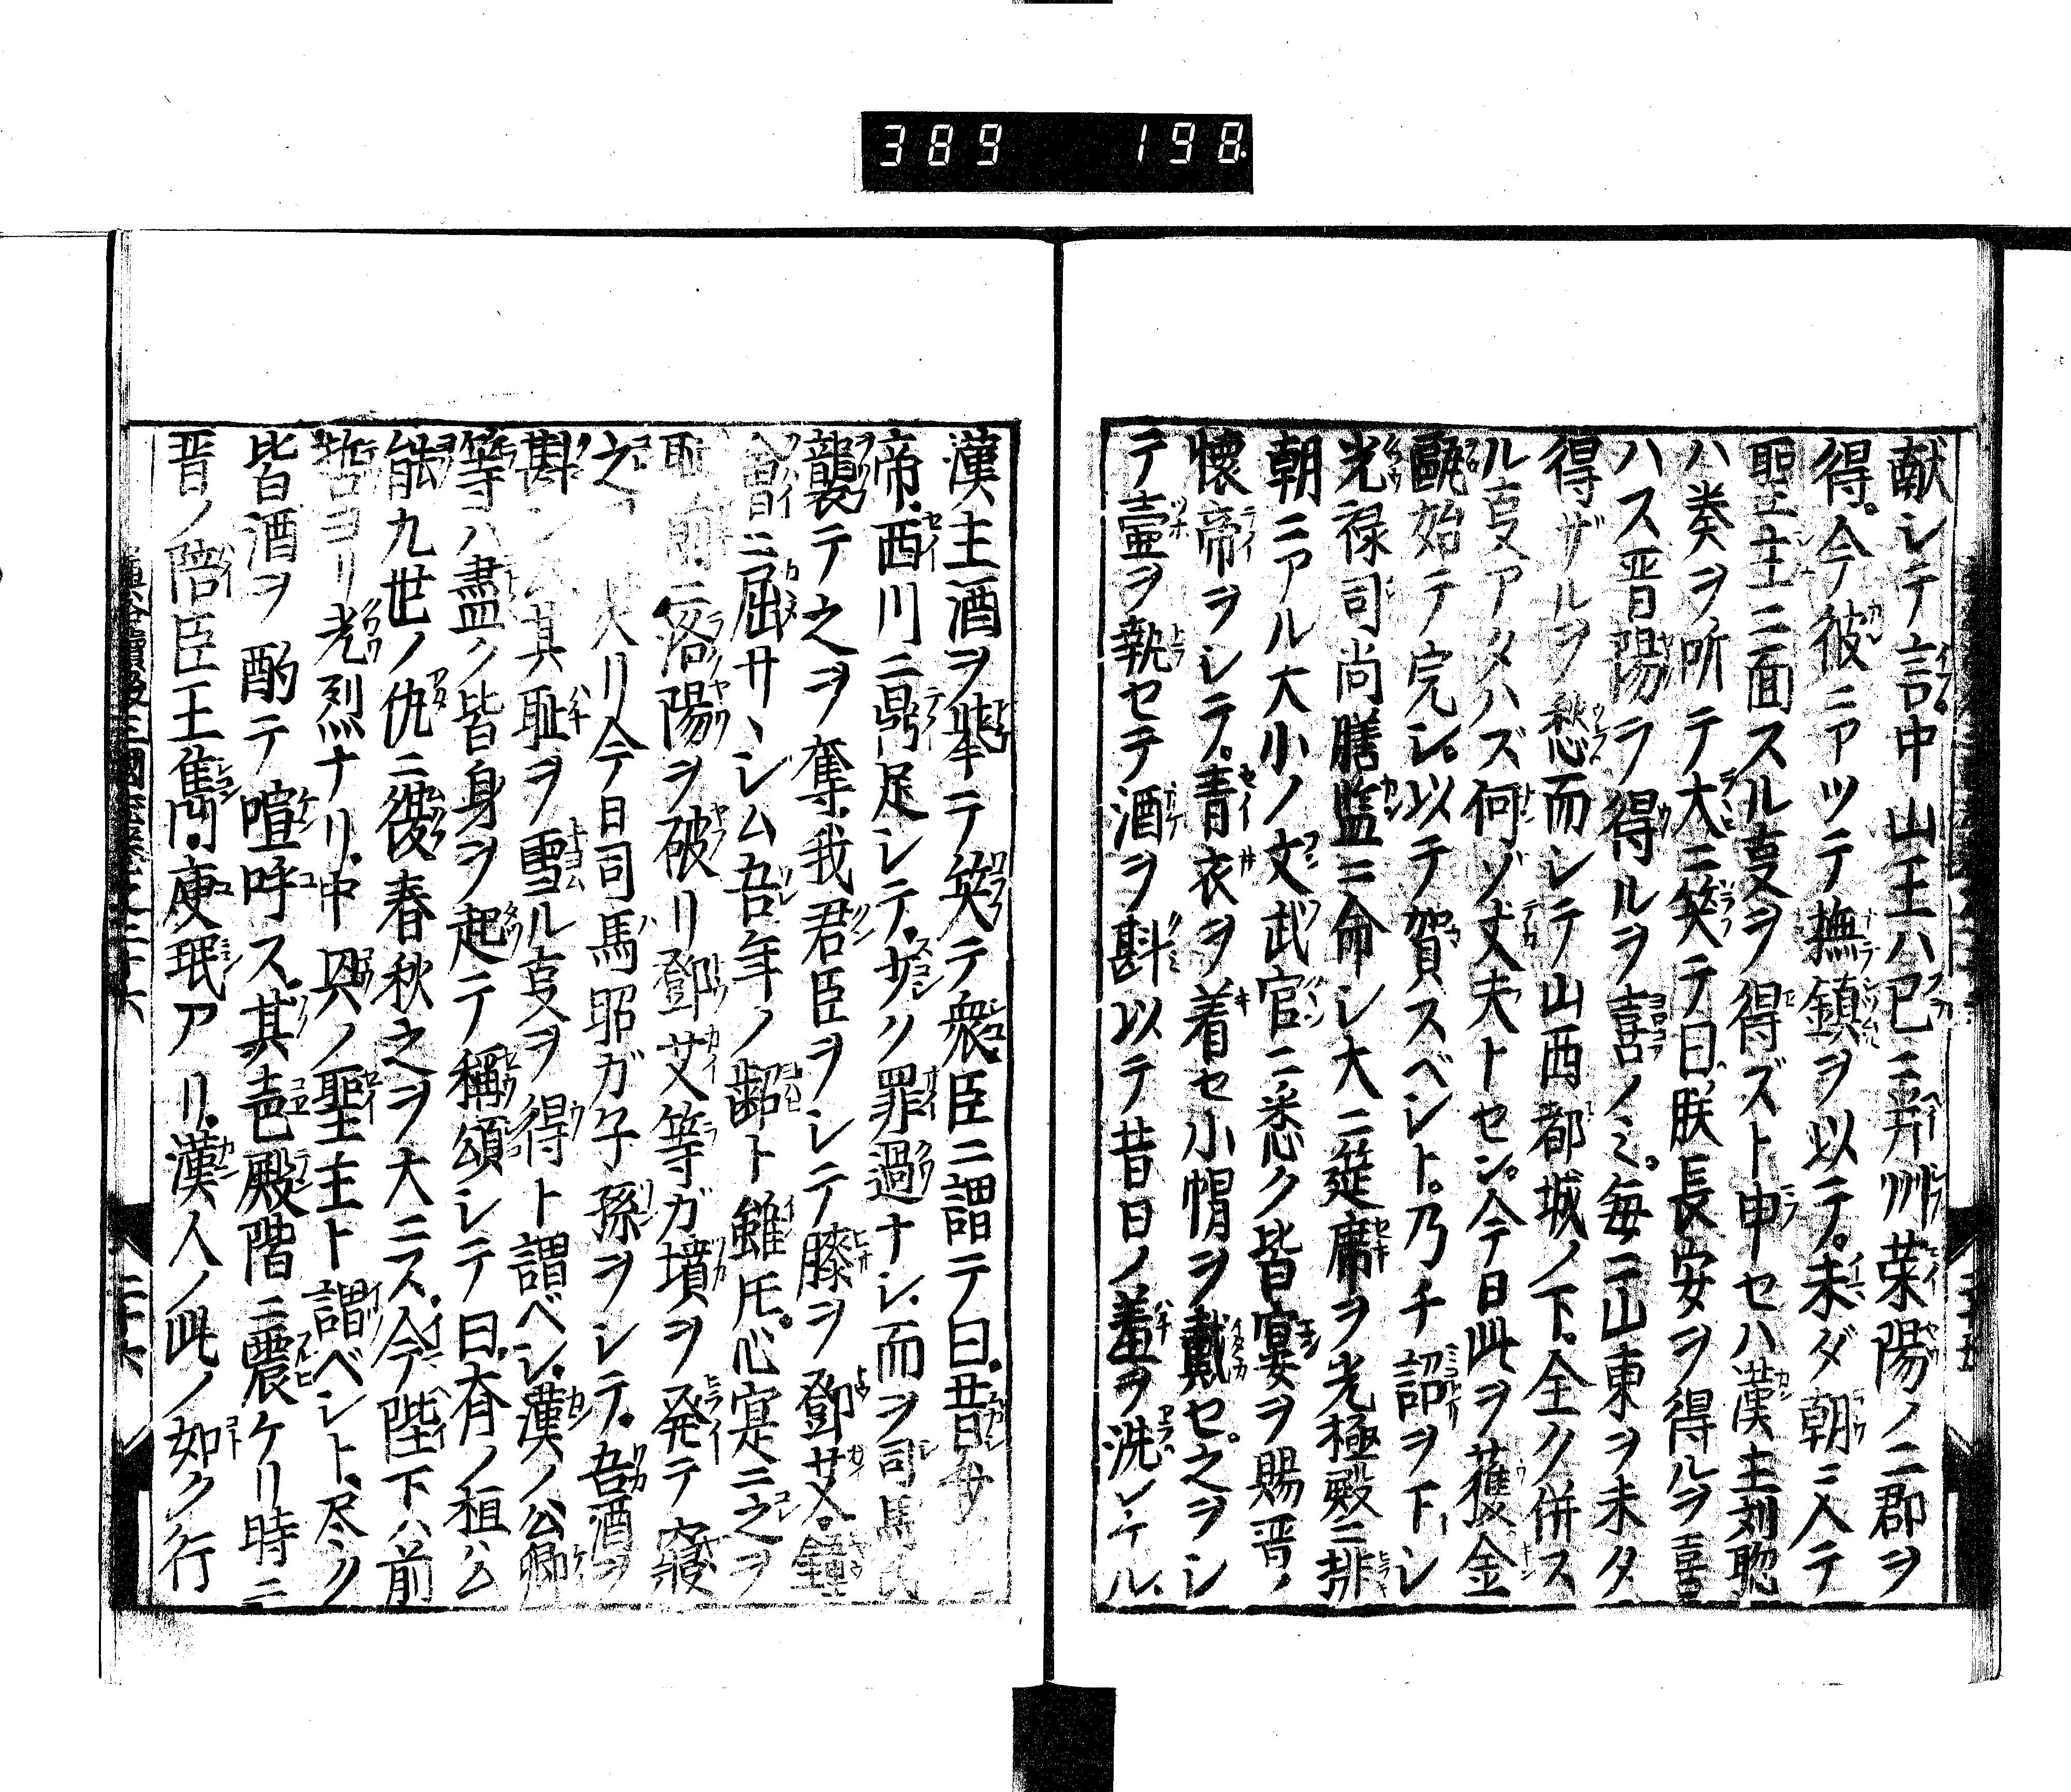 389 198
献シテ言中山王ハ已ニ并州荥陽ノ二郡ヲ
得。今彼ニアツテ撫鎮ヲ以テ。未ダ朝ニ入テ
聖主ニ面スル叓ヲ得ズト申セハ漢主刘聡
ハ奏ヲ所テ大ニ笑テ曰朕長安ヲ得ルヲ喜
ハス晋陽ヲ得ルヲ喜ノミ。毎ニ山東ヲ未タ
得ザルヲ愁而シテ山西都城ノ下。全ク併ス
ル叓アタハズ何ゾ丈夫トセン。今日此ヲ獲金
甌始テ完シ。以テ賀スベシト。乃チ詔ヲ下シ
光禄司尚膳監ニ命シ大ニ筵席ヲ光極殿ニ排
朝ニアル大小ノ文武官ニ悉ク皆宴ヲ賜晋ノ
懐帝ヲシテ。青衣ヲ着セ小帽ヲ戴セ。之ヲシ
テ壷ヲ執セテ酒ヲ斟以テ昔日ノ羞ヲ洗シケル。
漢主酒ヲ挙テ笑テ衆臣ニ謂テ曰。昔日
帝。西川ニ鼎足シテ。少ク罪過ナシ。而ヲ司馬氏
襲テ之ヲ奪。我君臣ヲシテ膝ヲ鄧艾。鐘
會ニ屈サンシム吾年ノ齠ト雖𪜈。心寔ニ之ヲ
耻前ニ洛陽ヲ破リ鄧艾等ガ墳ヲ発テ窺
之 大リ今日司馬昭ガ子孫ヲシテ。吾酒ヲ
斟シ 其耻ヲ雪ル叓ヲ得ト謂ベシ。漢ノ公卿
等ハ盡ク皆身ヲ起テ稱頌シテ曰。斉ノ桓公
能九世ノ仇ニ復春秋之ヲ大ニス。今陛下ハ前
哲ヨリ光烈ナリ。中興ノ聖主ト謂ベシト。尽ク
皆酒ヲ酌テ喧呼ス。其声殿階ニ震ケリ時ニ
晋ノ陪臣王雋。庾珉アリ。漢人ノ此ノ如ク行